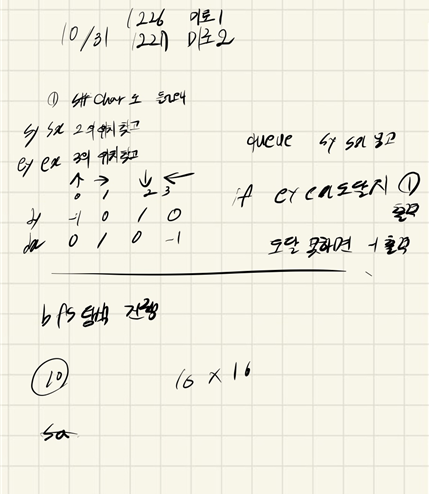 10/31 1226 미로1
1227 미로2
① 입력 char로 들어옴
sy sx 2의 위치 찾고
ey ex 3의 위치 찾고
↑ → ↓ ←
0 1 2 3
dy -1 0 1 0
dx 0 1 0 -1
queue sy sx 넣고
if ey ex 도달시 ① 출력
도달 못하면 -1 출력
bfs 탐색 진행
10
16 × 16
sx